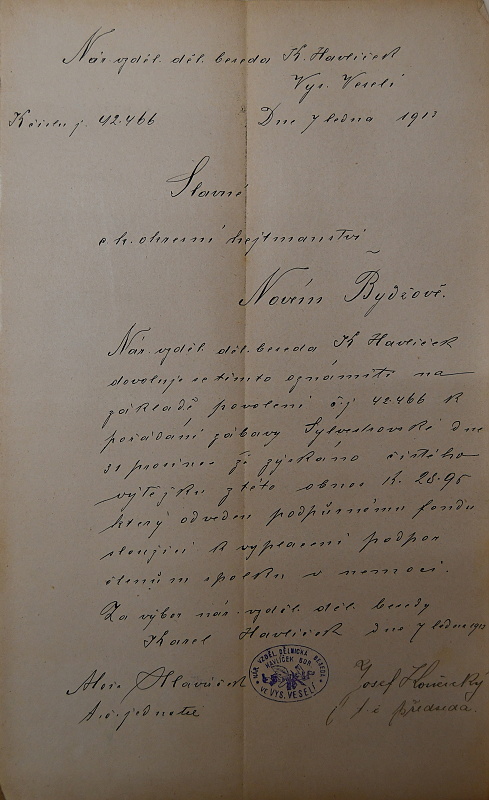 Nár. vzděl. děl. beseda K. Havlíček
Vys. Veselí
K číslu j. 42.466
Dne 7 ledna
Slavné
c k. okresní hejtmanství
Novém Bydžově.
Nár. vzděl. děl. beseda K Havlíček
dovoluje se tímto oznámiti na
základě povolení čj 42.466 k
pořádání zábavy Sylvestrovské dne
31 prosince že získáno čistého
výtěžku z této obnos K. 28.95
který odveden podpůrnému fondu
sloužící k vyplacení podpor
členům spolku v nemoci.
Za výbor nár. vzděl. děl. besedy
Karel Havlíček dne 7 ledna
NÁR. VZDĚL. DĚLNICKÁ BESEDA
HAVLÍČEK BOR.
VE VYS. VESELÍ
Alois Hlaváček
t. č. jednatel
Josef
t č předseda.